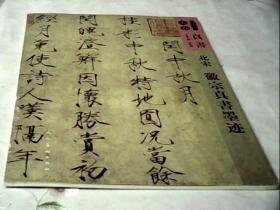 真書
北宋 徽宗真書墨迹
閏中秋月
桂彩中秋特地圓況當餘
閏魄澄鮮因懷勝賞初
經月免使詩人嘆隔年